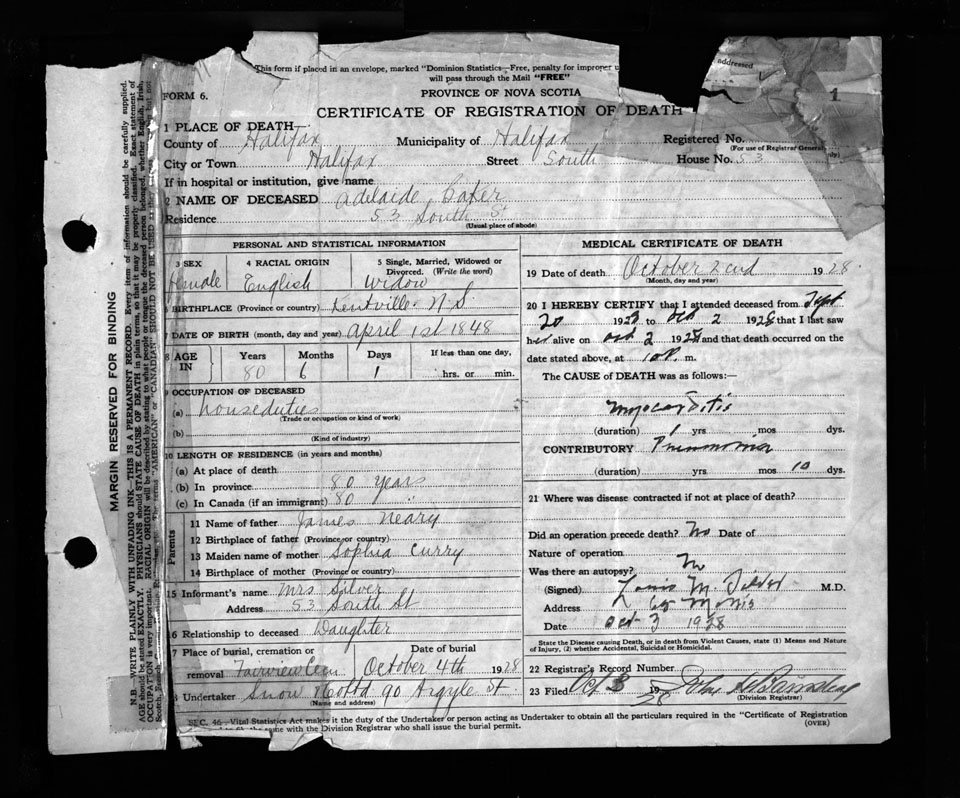 This form if placed in an envelope, marked "Dominion Statistics—Free, penalty for improper u
will pass through the Mail "FREE"
addressed
1
FORM 6.
PROVINCE OF NOVA SCOTIA
CERTIFICATE OF REGISTRATION OF DEATH
1 PLACE OF DEATH—
County of Halifax Municipality of Halifax Registered No.
(For use of Registrar General only)
City or Town Halifax Street South House No. 53
If in hospital or institution, give name
2 NAME OF DECEASED Adelaide
Residence 53 South St
(Usual place of abode)
PERSONAL AND STATISTICAL INFORMATION
3 SEX 4 RACIAL ORIGIN 5 Single, Married, Widowed or
Divorced. (Write the word)
female English Widow
BIRTHPLACE (Province or country) Kentville N.S
DATE OF BIRTH (month, day and year) April 1st 1848
8 AGE IN Years Months Days If less than one day,
80 6 1 hrs. or min.
9 OCCUPATION OF DECEASED
(a) houseduties
(Trade or occupation or kind of work)
(b)
(Kind of industry)
10 LENGTH OF RESIDENCE (in years and months)
(a) At place of death
(b) In province 80 years
(c) In Canada (if an immigrant) 80 "
Parents
11 Name of father James Neary
12 Birthplace of father (Province or country)
13 Maiden name of mother Sophia Curry
14 Birthplace of mother (Province or country)
15 Informant's name Mrs Silver
Address 53 South St
16 Relationship to deceased Daughter
17 Place of burial, cremation or Date of burial
removal Fairview Cem October 4th 1928
Undertaker Snow & Co Ltd 90 Argyle St
(Name and address)
MEDICAL CERTIFICATE OF DEATH
19 Date of death October 2cnd 1928
(Month, day and year)
20 I HEREBY CERTIFY that I attended deceased from Sept
20 1928 to Oct 2 1928 that I last saw
her alive on Oct 2 1928 and that death occurred on the
date stated above, at 10 P. m.
The CAUSE of DEATH was as follows:—
Myocarditis
(duration) 1 yrs mos dys.
CONTRIBUTORY Pneumonia
(duration) yrs mos 10 dys.
21 Where was disease contracted if not at place of death?
Did an operation precede death? No Date of
Nature of operation
Was there an autopsy? No
(Signed) Louis M. M.D.
Address Morris
Date Oct 3 1928
State the Disease causing Death, or in death from Violent Causes, state (1) Means and Nature
of Injury, (2) whether Accidental, Suicidal or Homicidal.
22 Registrar's Record Number
23 Filed Oct 3 1928 John
(Division Registrar)
SEC. 46—Vital Statistics Act makes it the duty of the Undertaker or person acting as Undertaker to obtain all the particulars required in the "Certificate of Registration
the same with the Division Registrar who shall issue the burial permit.
(OVER)
MARGIN RESERVED FOR BINDING
N.B. WRITE PLAINLY WITH UNFADING INK—THIS IS A PERMANENT RECORD. Every item of information should be carefully supplied.
AGE should be stated EXACTLY. PHYSICIANS should STATE CAUSE OF DEATH in plain terms, so that it may be properly classified. Exact statement of
OCCUPATION is very important. RACIAL ORIGIN will be described by stating to what people or tongue the deceased person belonged, whether English, Irish,
The terms "AMERICAN" or "CANADIAN" SHOULD NOT BE USED